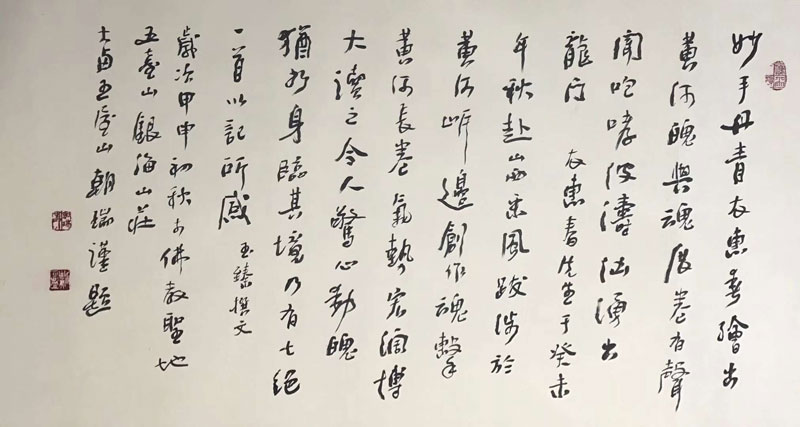 妙手丹青衣惠春繪出
黃河魄與魂展卷有聲
聞咆哮波濤汹湧出
龍門 衣惠春先生于癸未
年秋赴山西采風跋涉於
黃河岍邊創作魂擊
黃河長卷氣勢宏濶博
大讀之令人驚心動魄
猶如身臨其境乃有七绝
一首以記所感 玉臻撰文
歲次甲申初秋于佛教聖地
五臺山銀海山莊
大鹵五臺山朝瑞謹題